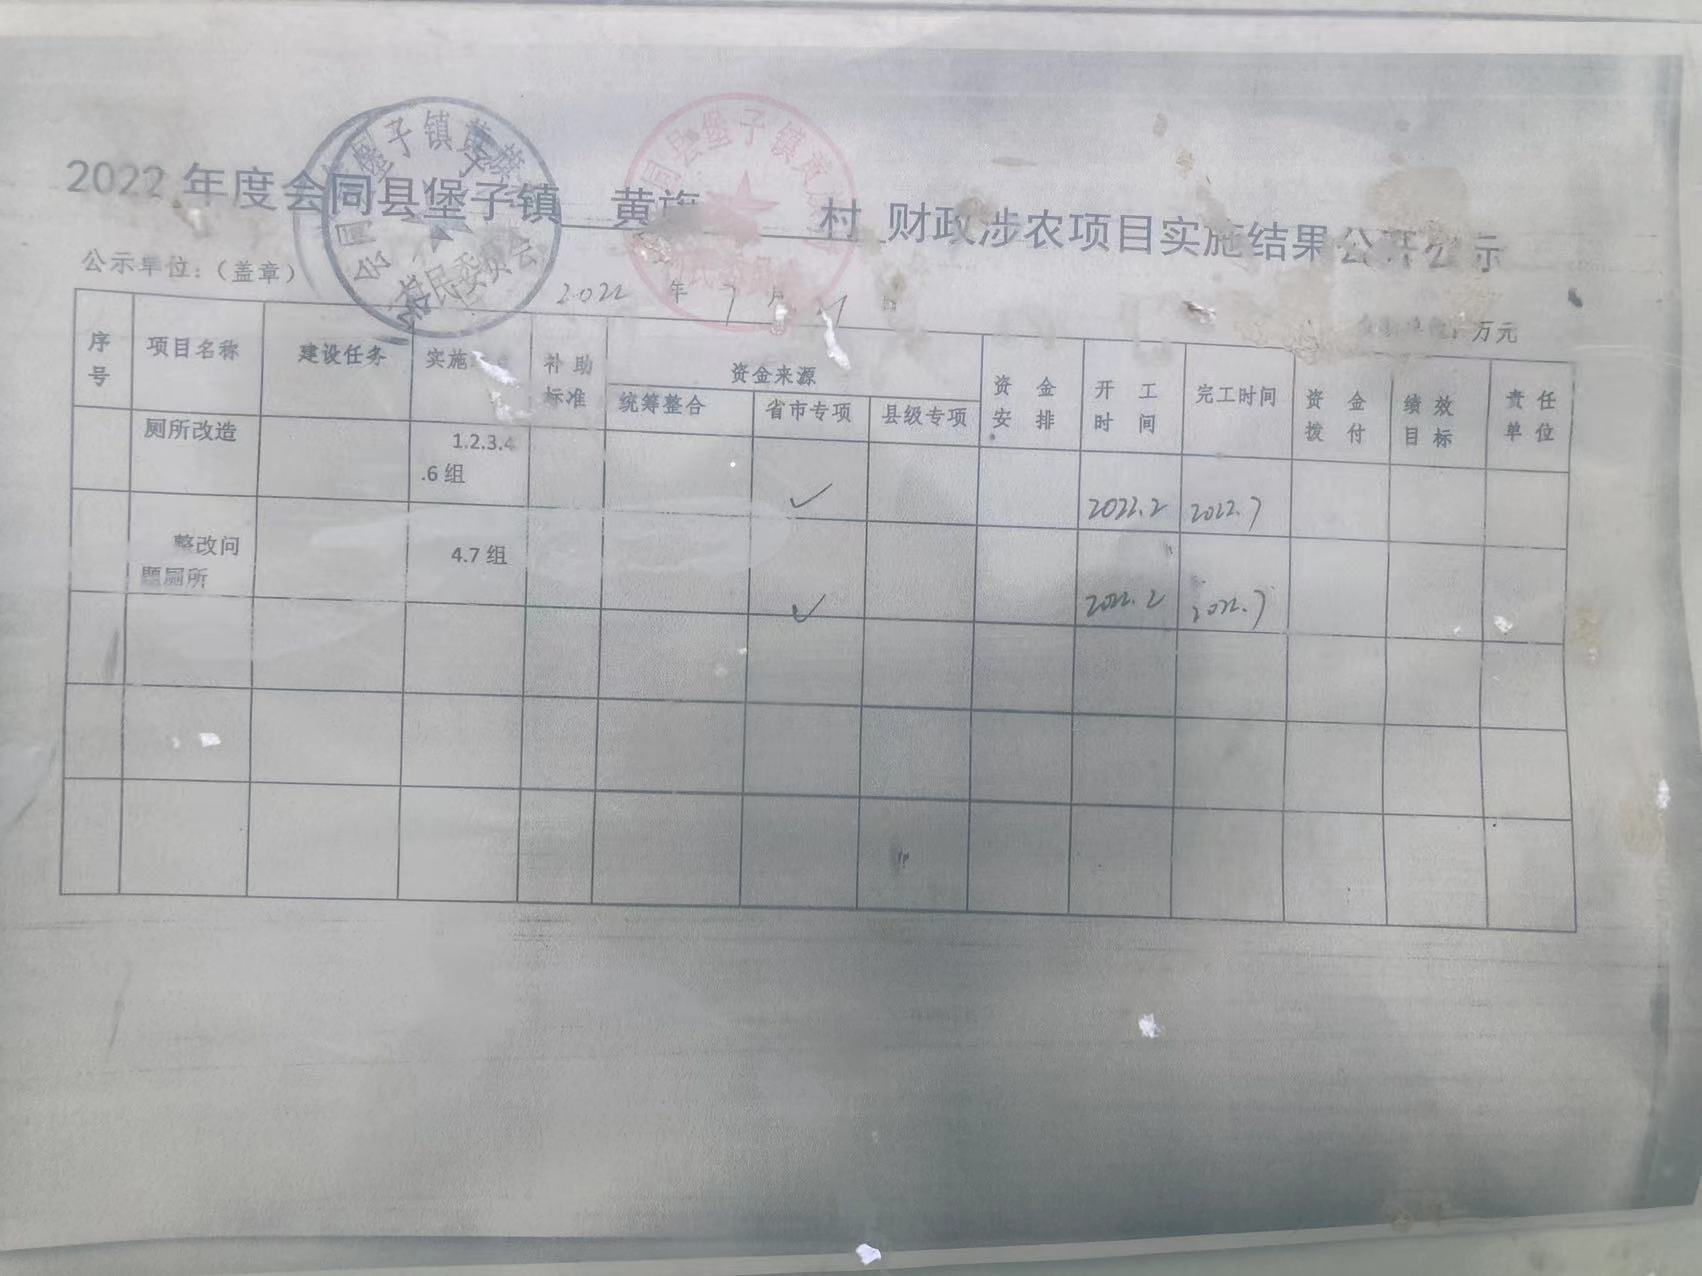 2022 年度会同县堡子镇 黄旗 村 财政涉农项目实施结果公开公示
会同县堡子镇黄旗村民委员会
同县堡子镇黄
公示单位：（盖章） 2022 年 7 月
万元
序号 项目名称 建设任务 实施 补助标准 资金来源 资金安排 开工时间 完工时间 资金拨付 绩效目标 责任单位
统筹整合 省市专项 县级专项
厕所改造 1.2.3.4
.6 组 ✓ 2022.2 2022.7
整改问
题厕所 4.7 组 ✓ 2022.2 2022.7